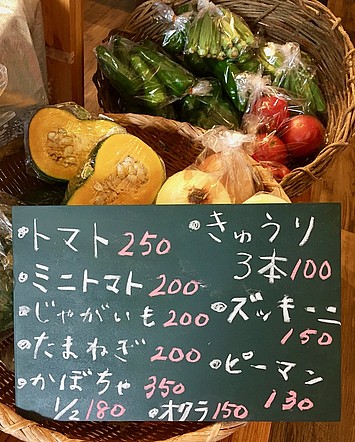 ・トマト 250
・ミニトマト 200
・じゃがいも 200
・たまねぎ 200
・かぼちゃ 350
1/2 180
・きゅうり
3本 100
・ズッキーニ
150
・ピーマン
130
・オクラ 150